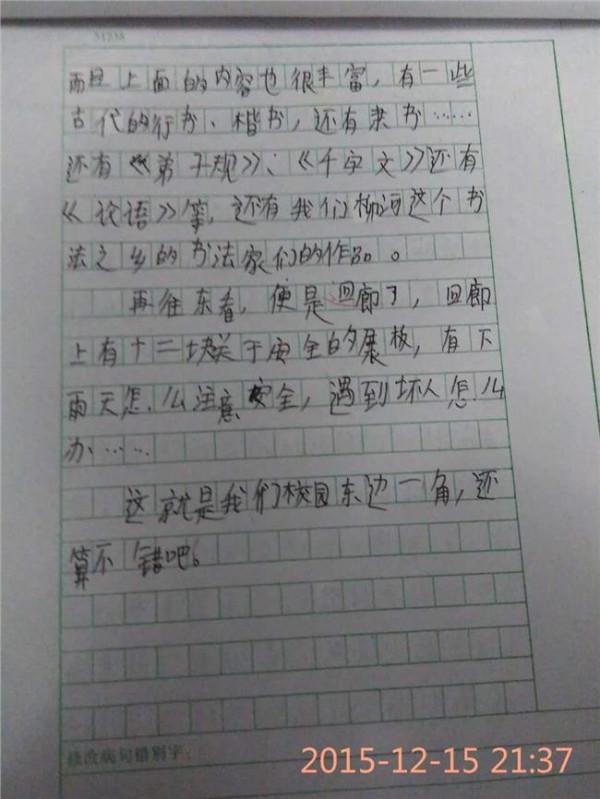 而且上面的内容也很丰富，有一些
古代的行书、楷书，还有隶书……
还有《弟子规》、《千字文》还有
《论语》等，还有我们柳河这个书
法之乡的书法家们的作品。
再往东看，便是回廊了，回廊
上有十二块关于安全的展板，有下
雨天怎么注意安全，遇到坏人怎么
办……
这就是我们校园东边一角，还
算不错吧。
修改病句错别字：
2015-12-15 21:37